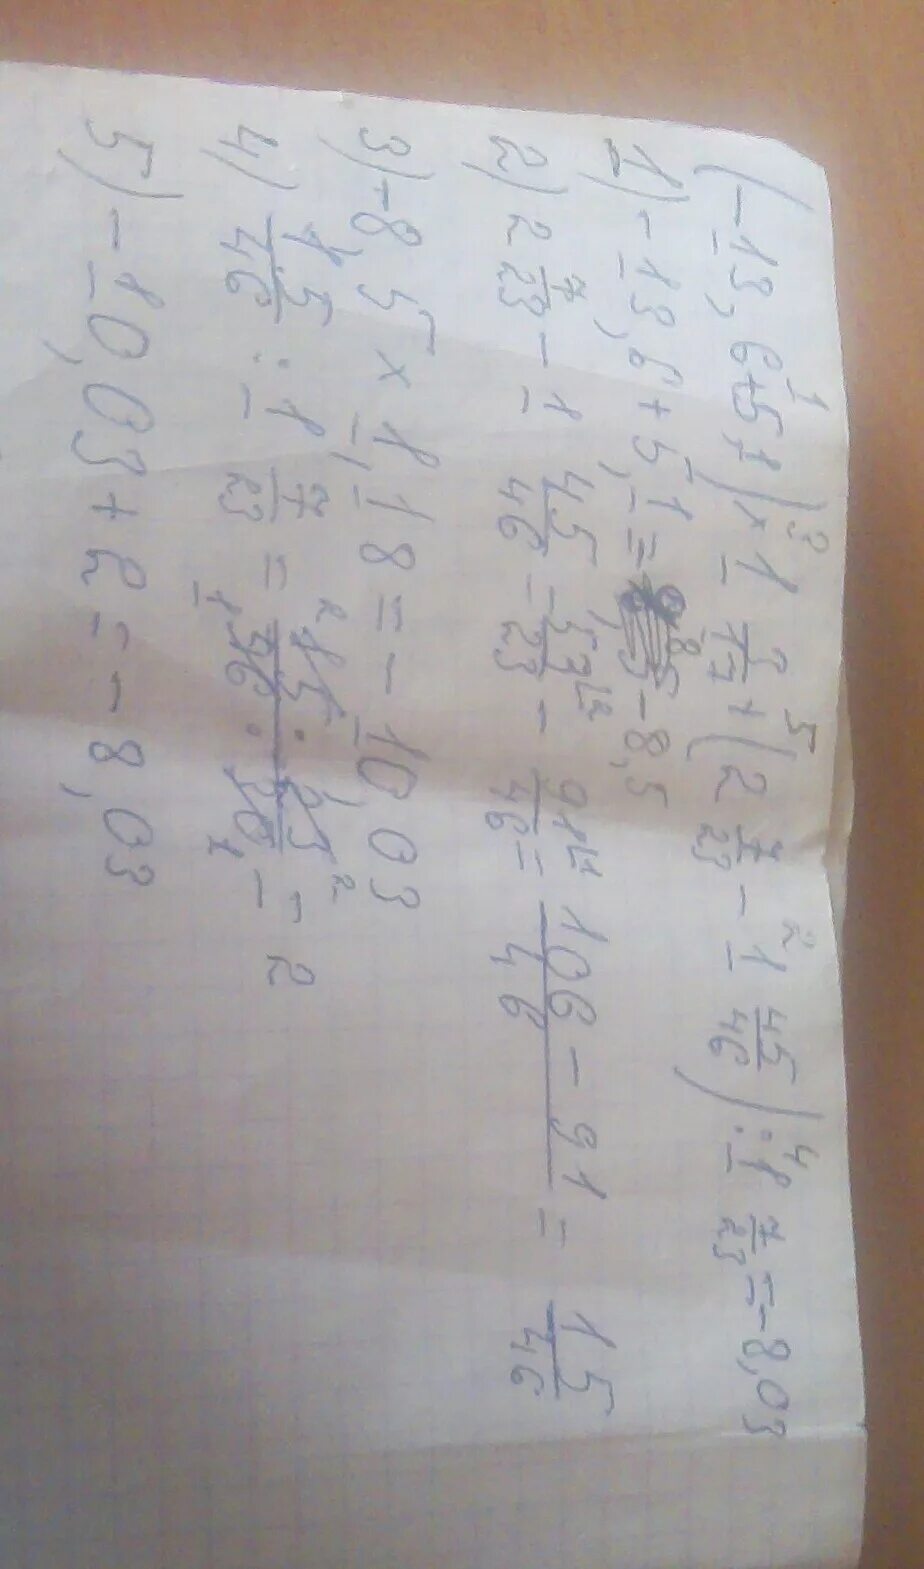 (-13,6+5,1)×1 3/17+(2 7/23-1 45/46):1 7/23=-8,03
1) -13,6+5,1=-8,5
2) 2 7/23-1 45/46=53/23-91/46=106-91/46=15/46
3) -8,5×1,18=-10,03
4) 15/46:1 7/23=
5) -10,03+2=-8,03